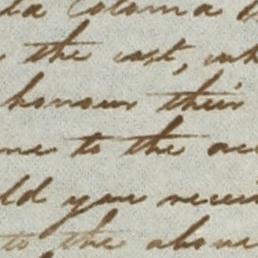 da Coloma
the cost, wh
honour their
me to the acc
ld you recei
to the above